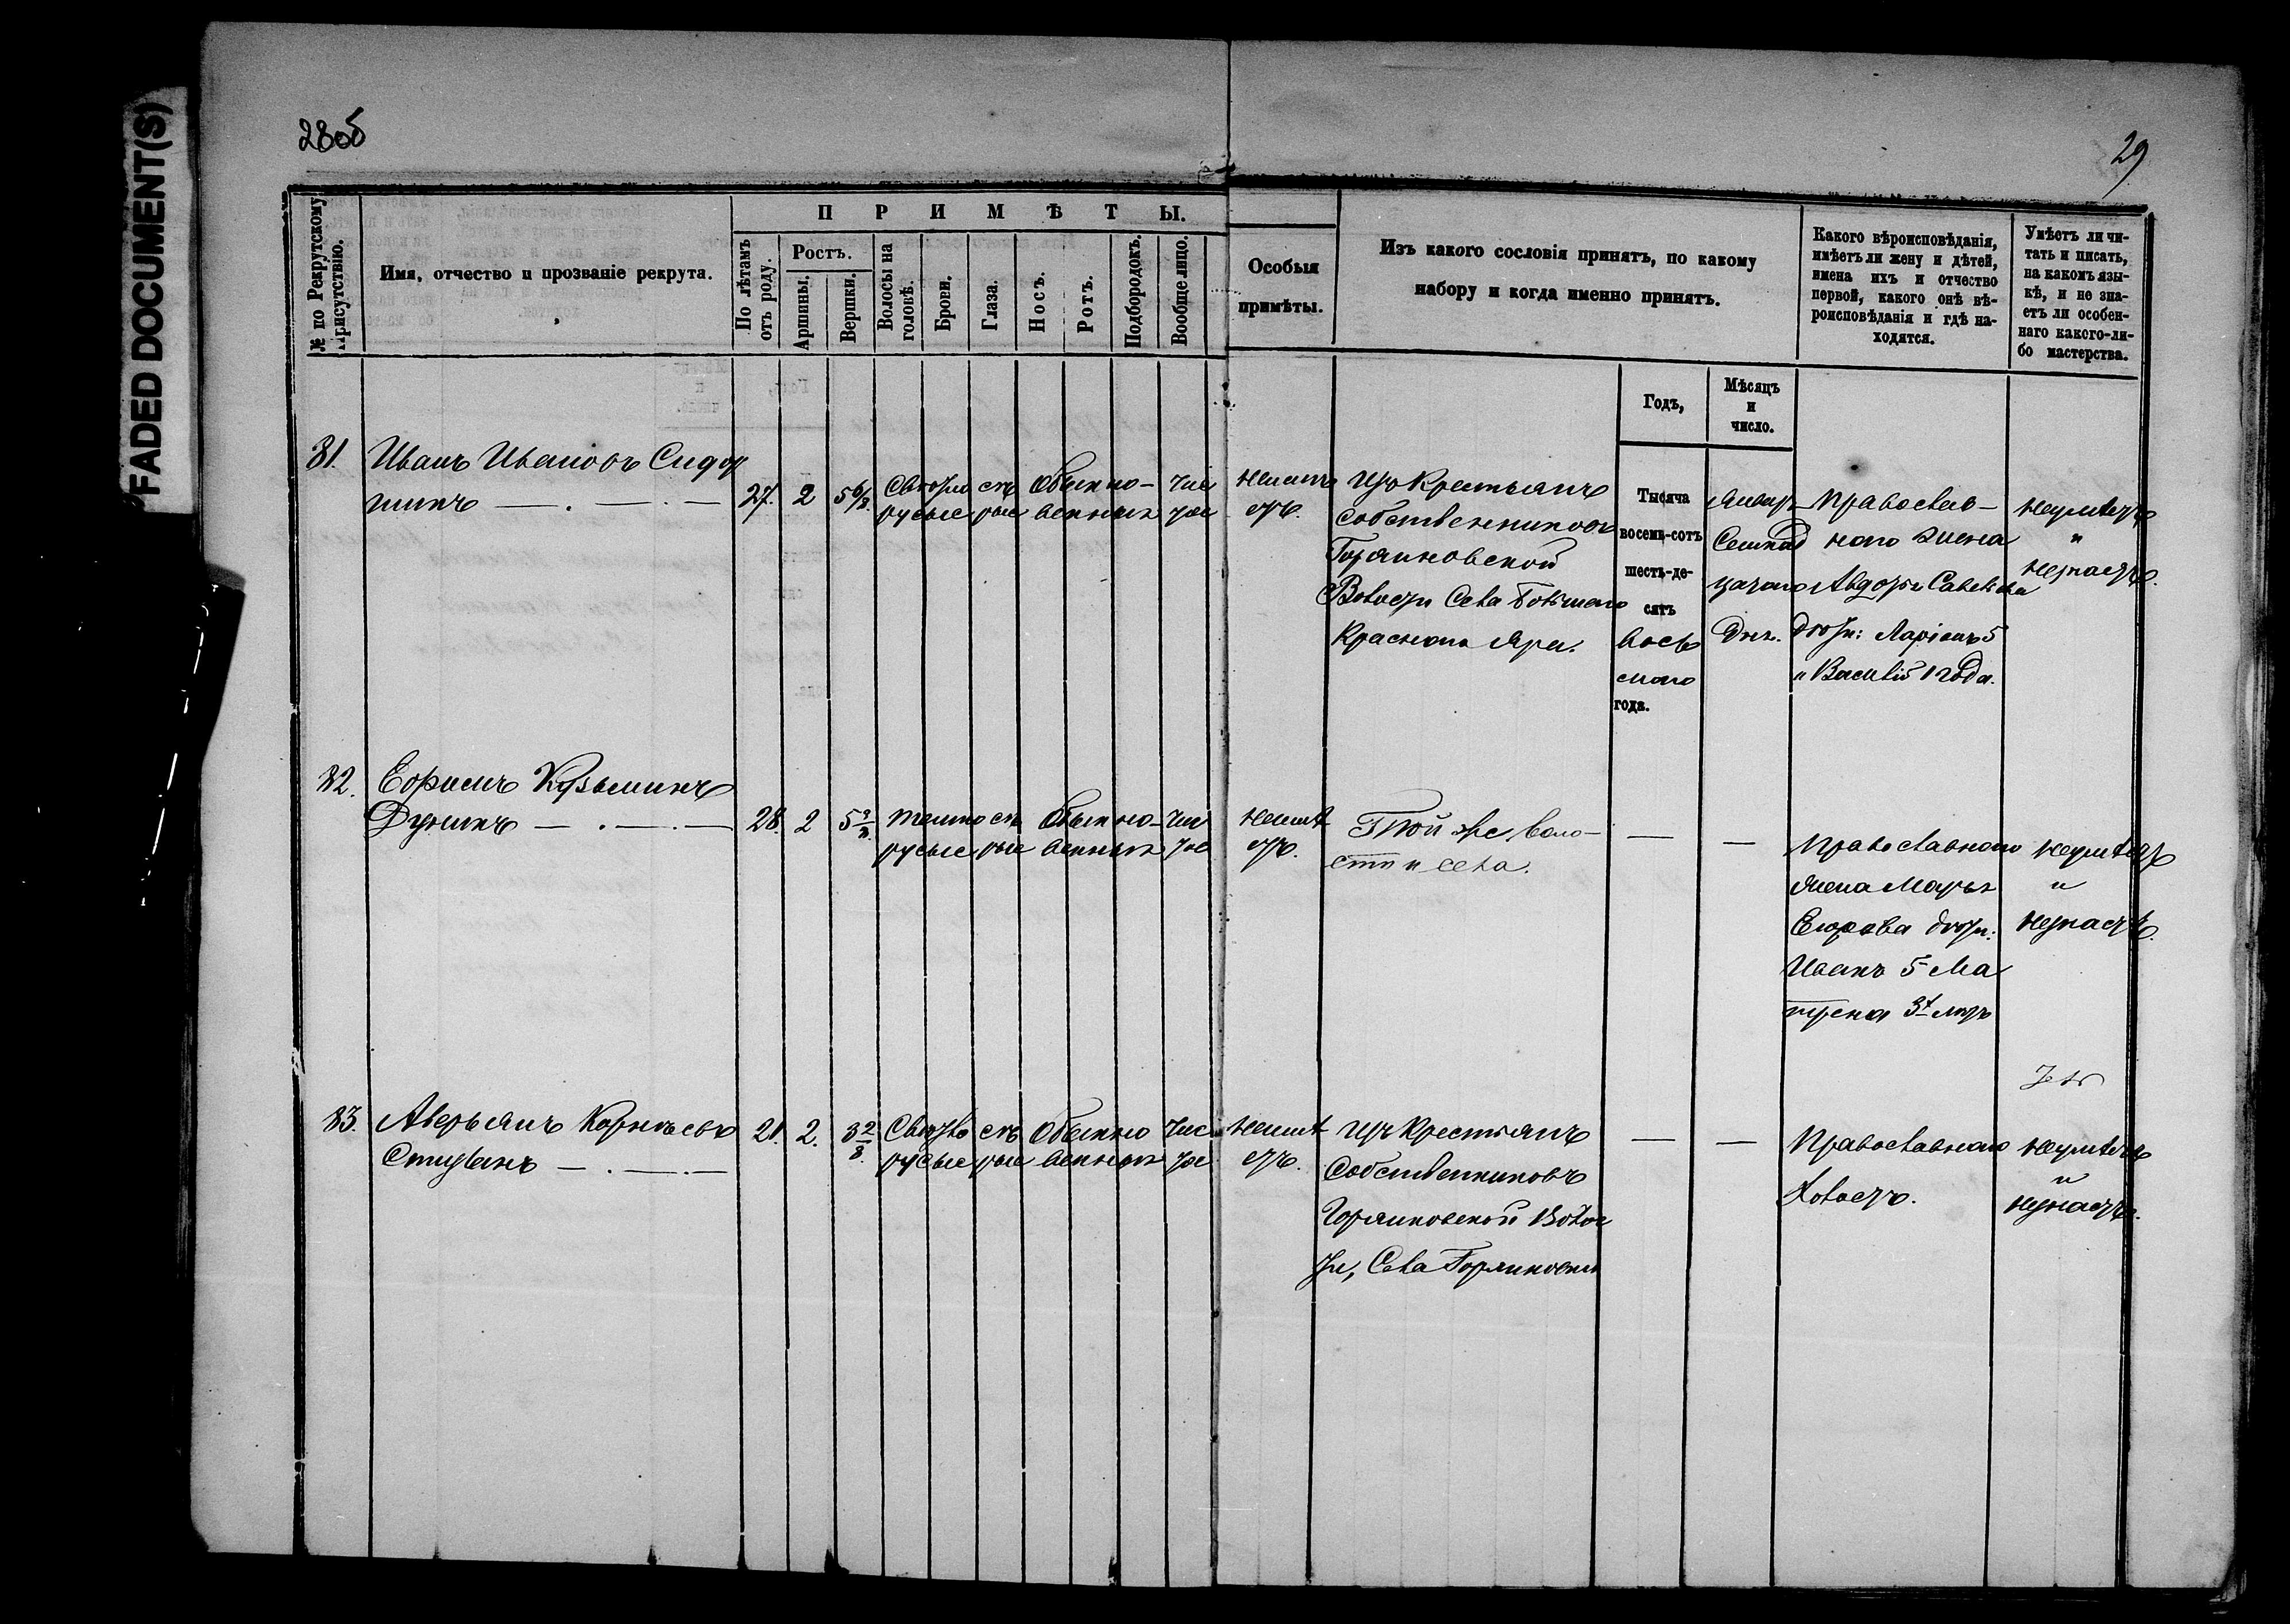 FADED DOCUMENT(S)
28об
29
№ по Рекрутскому Присутствію.
Имя, отчество и прозваніе рекрута.
ПРИМѢТЫ.
По лѣтамъ отъ роду.
Ростъ.
Аршины.
Вершки.
Волосы на головѣ.
Брови.
Глаза.
Носъ.
Ротъ.
Подбородокъ.
Вообще лицо.
Особыя
примѣты.
Изъ какого сословія принятъ, по какому
набору и когда именно принятъ.
Годъ,
Мѣсяцъ
и
число.
Какого вѣроисповѣданія,
имѣетъ ли жену и дѣтей,
имена ихъ и отчество
первой, какого онѣ вѣ-
роисповѣданія и гдѣ на-
ходятся.
Умѣетъ ли чи-
тать и писать,
на какомъ язы-
кѣ, и не зна-
етъ ли особен-
наго какого-ли-
бо мастерства.
81. Иванъ Ивановъ Сидор
кинъ
27. 2 5 6/8.
Свѣтло
русые
сѣ
рые
Обыкно-
венныя
Чис
тое
Неимѣ
етъ.
Изъ Крестьянъ
собственниковъ
Горяиновской
Волости Села Большаго
Краснаго Яра.
Тысяча
восемь-сотъ
шесть-де-
сятъ
вось
маго
года.
Январ
Семнад
цатаго
Дня.
Православ-
наго жена
Авдотья Савельева
дѣти: Ларіонъ 5
и Василій 1 года.
Неумѣетъ
и
незнаетъ.
82. Ефимъ Кузьминъ
Дунинъ
28. 2
темно
русые
сѣ
рые
Обыкно-
венныя
Чис
тое
Неимѣ
етъ.
Той же воло-
сти и села.
Православнаго
жена Марья
Егорова дѣти:
Иванъ 5 Ма
трена 3х лѣтъ
Неумѣетъ
и
незнаетъ.
83. Аверьянъ Корнѣевъ
21. 2. 3 2/8.
Свѣтло
русые
сѣ
рые
Обыкно
венныя
Чис
тое
Неимѣ
етъ.
Изъ Крестьянъ
Собственниковъ
Горяиновской Волос
ти, Села Горяиновки
Православнаго
Холостъ.
Неумѣетъ
и
незнаетъ.